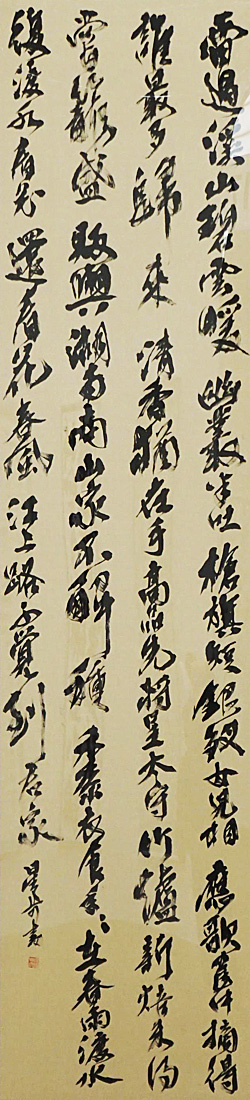 雷過溪山碧雲暖幽叢半吐槍旗短銀釵女兒相應歌筐中摘得
誰最多歸來清香猶在手高品先將呈太守竹爐新焙未得
嘗籠盛販與湖南商山家不解種禾黍衣食年〻在春雨渡水
復渡水看花還看花春風江上路不覺到君家